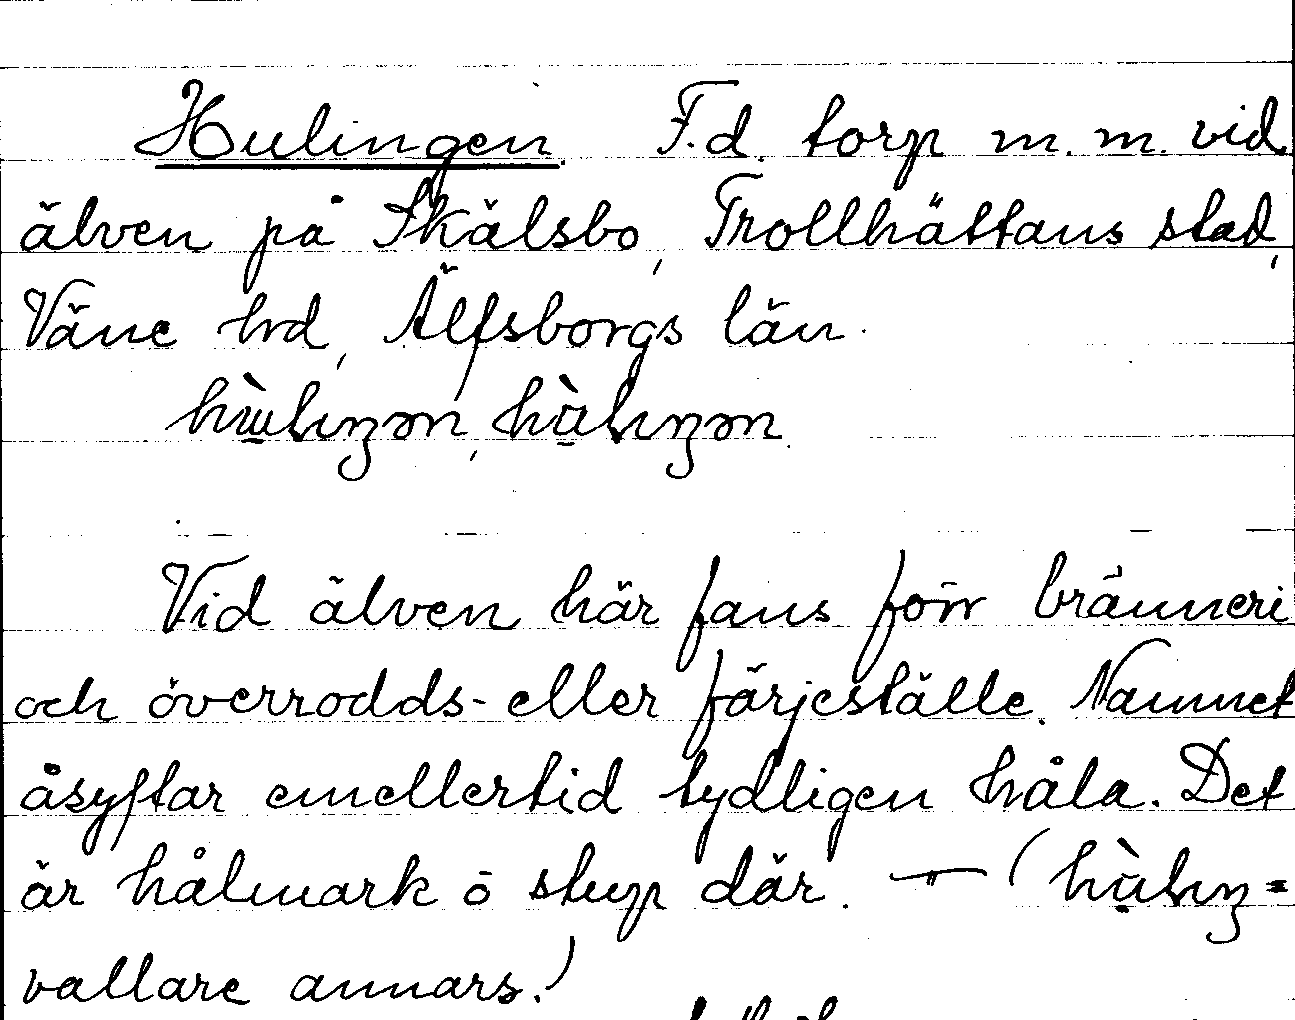 Hulingen. F.d. torp m.m. vid
älven på Skälsbo, Trollhättans stad,
Väne hd, Älfsborgs län.
Vid älven här fans förr bränneri
och överrodds- eller färjeställe. Namnet
åsyftar emellertid tydligen håla. Det
är hålmark ō stup där. — (
vallare annars.)